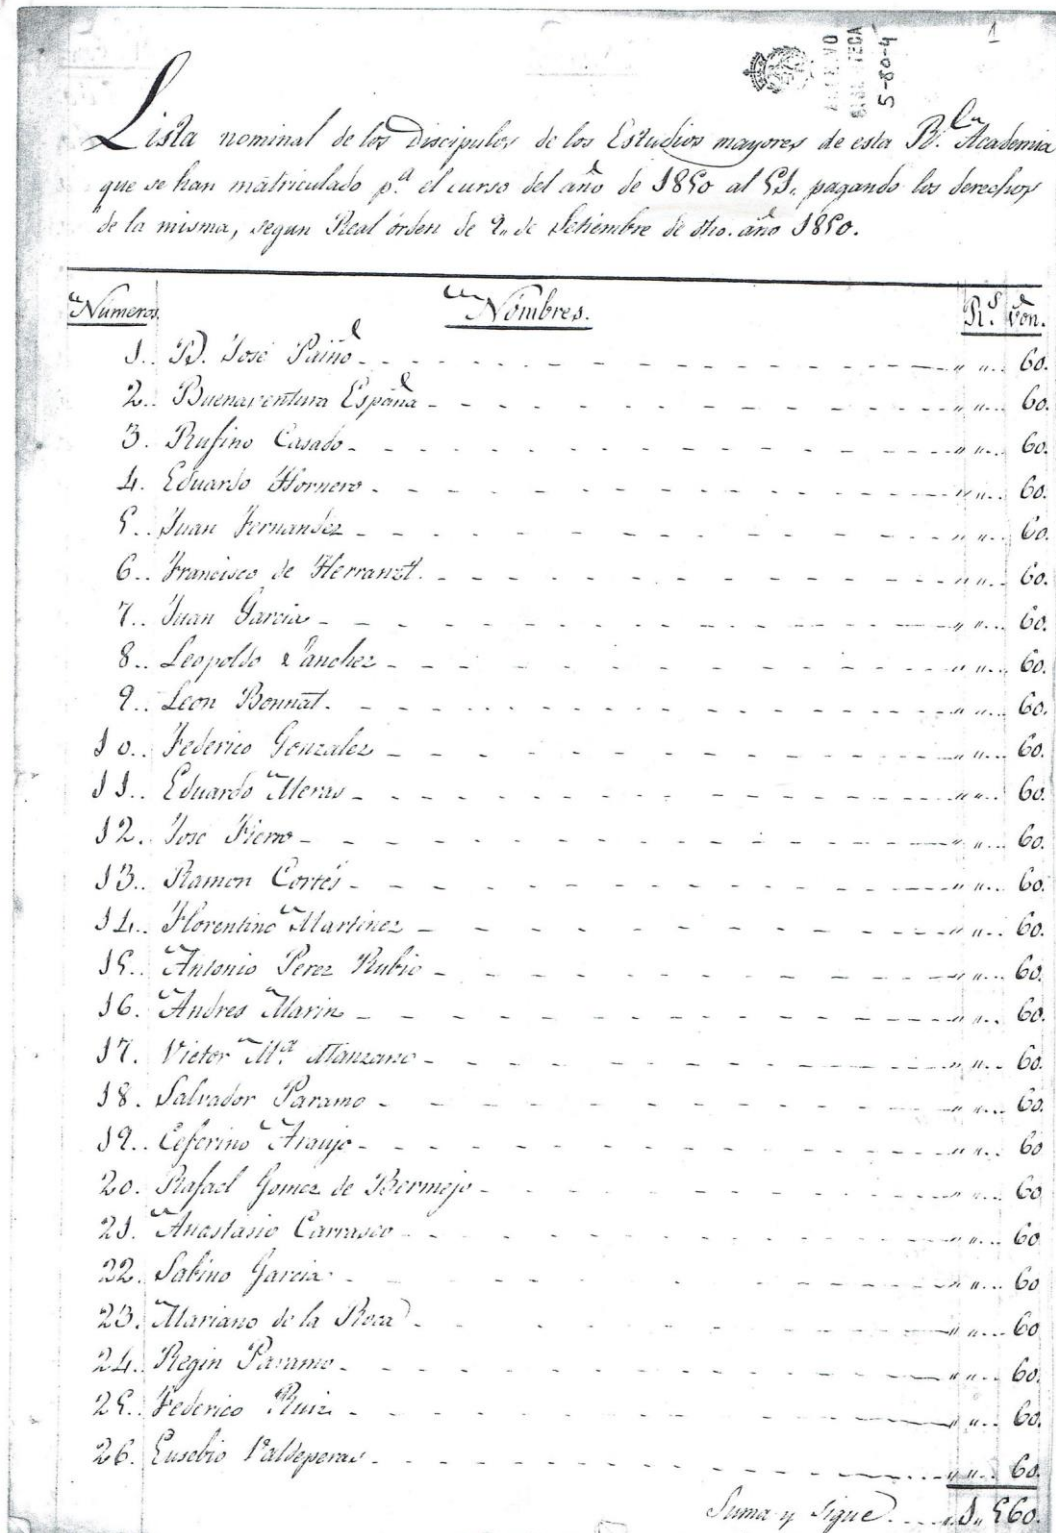 1
ARCHIVO
BIBLIOTECA
5-80-4
Lista nominal de los Discipulos de los Estudios mayores de esta Rl. Academia
que se han matriculado p.a el curso del año de 1850 al 51, pagando los derechos
de la misma, segun Real órden de 2 de Setiembre de dho. año 1850.
Números. Nombres. R.s von.
1.. D. José Paiño 60.
2.. Buenaventura España 60.
3. Rufino Casado 60.
4. Eduardo Hornero 60.
5.. Juan Fernandez 60.
6.. Francisco de Herranzt. 60.
7.. Juan Garcia 60.
8.. Leopoldo Sanchez 60.
9.. Leon Bonnat. 60.
10.. Federico Gonzalez 60.
11.. Eduardo Meras 60.
12. José Fierro 60.
13.. Ramon Cortés 60.
14.. Florentino Martinez 60.
15.. Antonio Perez Rubio 60.
16. Andres Marin 60.
17. Victor M.a Manzano 60.
18. Salvador Paramo 60.
19.. Ceferino Araujo 60
20. Rafael Gomez de Bermejo 60
21. Anastasio Carrasco 60
22. Sabino Garcia 60
23. Mariano de la Roca 60
24. Regin Paramo 60.
25. Federico Ruiz 60.
26. Eusebio Valdeperas 60.
Suma y sigue 1,560.